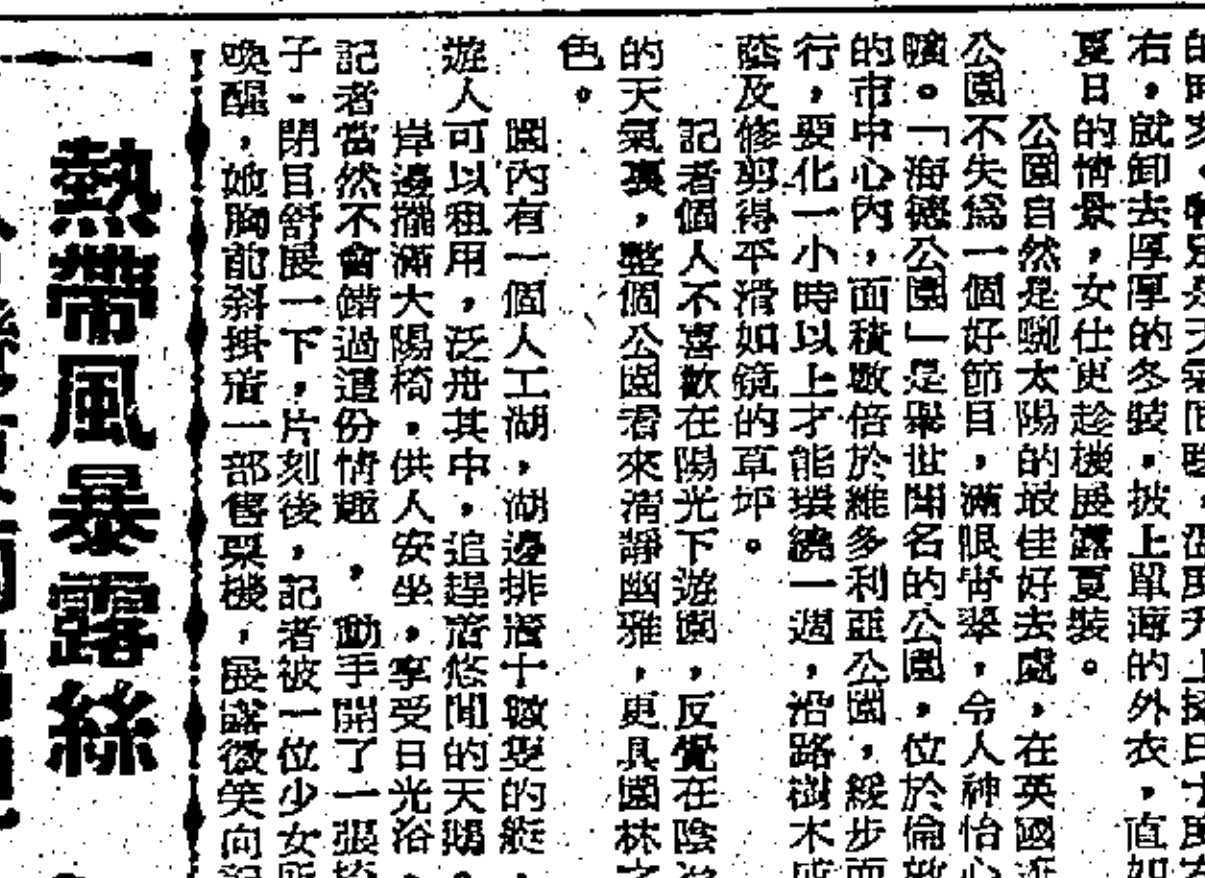 右，就卸去厚厚的冬裝，披上單薄的外衣，直如
夏日的情景，女仕更趁機展露夏裝。
公園自然是晒太陽的最佳好去處，在英國遊
公園不失爲一個好節目，滿眼青翠，令人神怡心
曠。「海德公園」是舉世聞名的公園，位於倫敦
的市中心內，面積數倍於維多利亞公園，緩步而
行，要化一小時以上才能環繞一週，沿路樹木成
蔭及修剪得平滑如鏡的草坪。
記者個人不喜歡在陽光下遊園，反覺在陰冷
的天氣裏，整個公園看來清靜幽雅，更具園林之
色。
園內有一個人工湖，湖邊排着十數隻的艇，
遊人可以租用，泛舟其中，追趕着悠閒的天鵝。
岸邊擺滿太陽椅，供人安坐，享受日光浴，
記者當然不會錯過這份情趣，動手開了一張椅
子，閉目舒展一下，片刻後，記者被一位少女所
喚醒，她胸前斜掛着一部售票機，展露微笑向記
熱帶風暴露絲